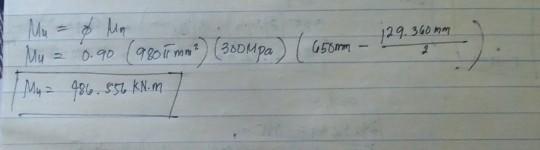 Mu = ϕ Mn
Mu = 0.90 (980π mm²) (300MPa) (650mm - 129.360mm/2)
Mu = 486.556 kN.m